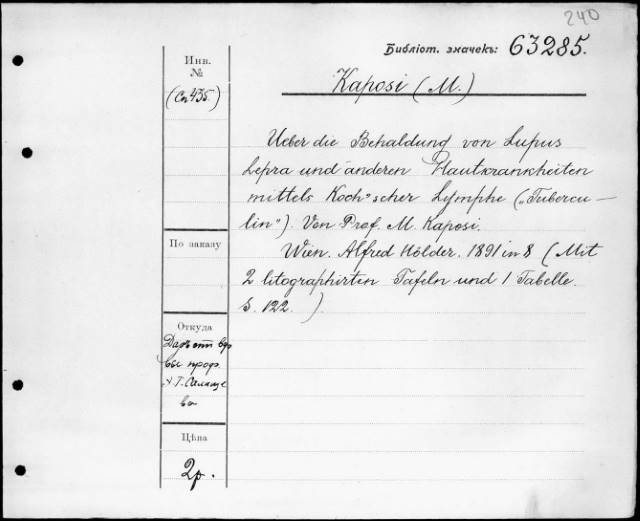 240
Библіот. значекъ: 63285.
Инв.
№
(Сп 435.)
Kaposi (M.)
Ueber die Behaldung von Lupus
Lepra und anderen Hautkrankheiten
mittels Koch'scher Lymphe („Tubercu-
lin"). Von Prof. M. Kaposi.
Wien. Alfred Hölder. 1891 in 8 (Mit
2 litographirten Tafeln und 1 Tabelle.
S. 122.)
По заказу
Откуда
Даръ
проф.
Цѣна
2 р.